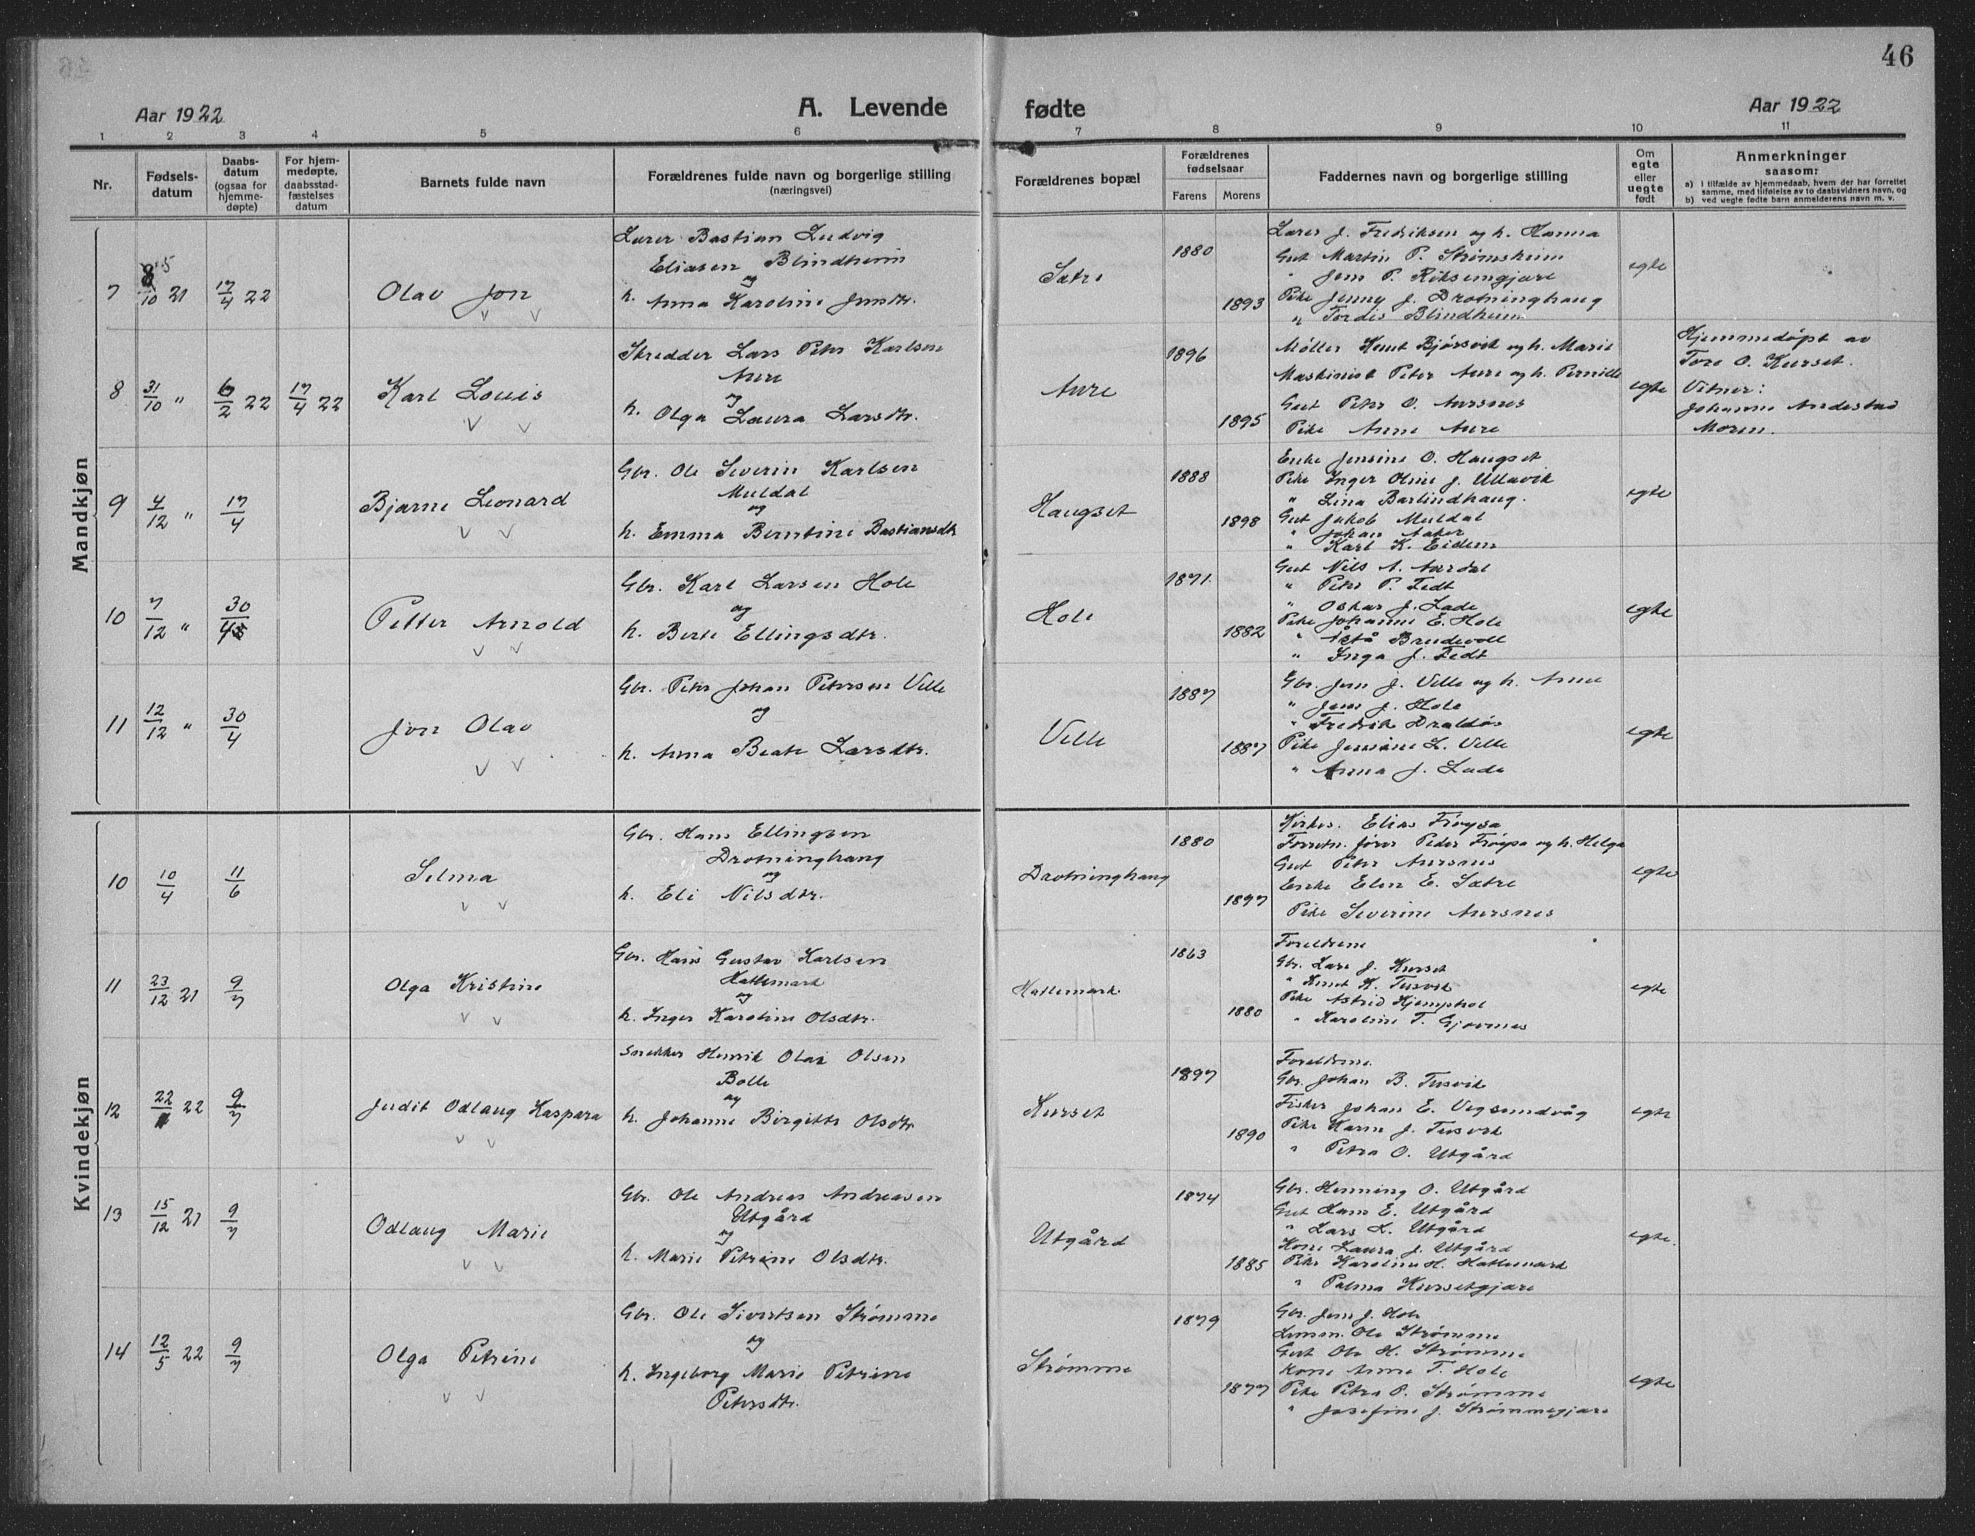 46
Aar 1922
A. Levende
fødte
Aar 1922
1 2 3 4 5 6 7 8 9 10 11
Nr.
Fødsels-
datum
Daabs-
datum
(ogsaa for
hjemme-
døpte)
For hjem-
medøpte,
daabsstad-
fæstelses
datum
Barnets fulde navn
Forældrenes fulde navn og borgerlige stilling
(næringsvei)
Forældrenes bopæl
Forældrenes
fødselsaar
Farens Morens
Faddernes navn og borgerlige stilling
Om
egte
eller
uegte
født
Anmerkninger
saasom:
a) I tilfælde av hjemmedaab, hvem der har forrettet
samme, med tilføielse av to daabsvidners navn, og
b) ved uegte fødte barn anmelderens navn m. v.
Mandkjøn
7 /10 21 17/4 22
Olav Jon
Lærer Bastian Ludvig
Eliasen Blindheim
og
h. Anna Karoline Jensdtr.
Sætre
1880
1893
Lærer J. Fredriksen og h. Hanna
Gut Martin P. Strømsheim
" Jens P. Riksemgjære
Pike Jenny J. Drotninghaug
" Tordis Blindheim
egte
8 31/10 " 6/2 22 17/4 22
Karl Louis
Skredder Lars Peter Karlsen
Aure
og
h. Olga Laura Larsdtr.
Aure
1896
1895
Møller Knut Bjørsvik og h. Marie
Maskinist Peter Aure og h. Pernille
Gut Peter O. Aursnes
Pike Anne Aure
egte
Hjemmedøpt av
Tore O. Kurset.
Vitner:
Johanne Andestad
Moren.
9 4/12 " 17/4
Bjarne Leonard
Gbr. Ole Severin Karlsen
Muldal
og
h. Emma Berntine Bastiansdtr
Haugset
1888
1898
Enke Jensine O. Haugset
Pike Inger Oline J. Ullavik
" Lina Barlindhaug.
Gut Jakob Muldal
" Johan Aaker
" Karl K. Eidem
egte
10 7/12 " 30/4
Petter Arnold
Gbr. Karl Larsen Hole
og
h. Berte Ellingsdtr.
Hole
1871.
1882
Gut Nils A. Aurdal
" Peter P. Fedt
" Oskar J. Lade
Pike Johanne E. Hole
" Åstå Brudevoll
" Inga J. Fedt
egte
11 12/12 " 30/4
Jon Olav
Gbr. Peter Johan Petersen Velle
og
h. Anna Beate Larsdtr.
Velle
1887
1887
Gbr. Jens J. Velle og h. Anne
" Jens J. Hole
" Fredrik
Pike Jensine L. Velle
" Anna J. Lade
egte
Kvindekjøn
10 10/4 11/6
Selma
Gbr. Hans Ellingsen
Drotninghaug
og
h. Eli Nilsdtr.
Drotninghaug
1880
1897
Kirkes. Elias Frøysa
Forretn.fører Peder Frøysa og h. Helga
Gut Peter Aursnes
Enke Elen E. Sætre
Pike Severine Aursnes
egte
11 23/12 21 9/7
Olga Kristine
Gbr. Hans Gustav Karlsen
Hattemark
og
h. Inger Karoline Olsdtr.
Hattemark
1863
1880
Foreldrene
Gbr. Lars J. Kurset
" Knut K. Tusvik
Pike Astrid Hjemphol
" Karoline T. Gjævenes
egte
12 22/ 22 9/7
Judit Odlaug Kaspara
Snekker Henrik Olai Olsen
Bolle
og
h. Johanne Birgitte Olsdtr
Kurset
1897
1890
Foreldrene.
Gbr. Johan B. Tusvik
Fisker Johan E. Vegsundvåg
Pike Karen J. Tusvik
" Petra O. Utgård
egte
13 15/12 21 9/7
Odlaug Marie
Gbr. Ole Andreas Andreasen
Utgård
og
h. Marie Petrine Olsdtr.
Utgård
1874
1885
Gbr. Henning O. Utgård
Gut Hans E. Utgård
" Lars L. Utgård
Kone Laura J. Utgård
Pike Karoline H. Hattemark
" Palma Kursetgjære
egte.
14 12/5 22 9/7
Olga Petrine
Gbr. Ole Sivertsen Strømme
og
h. Ingeborg Marie Petrine
Petersdtr.
Strømme
1879
1877
Gbr. Jens J. Hole
Lensm. Ole Strømme
Gut Ole H. Strømme
Kone Anne T. Hole
Pike Petra P. Strømme
" Josefine J. Strømmegjære
egte